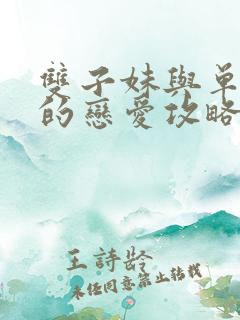 雙子妹與單
的戀愛攻略
王詩齡
未經同意禁止轉載